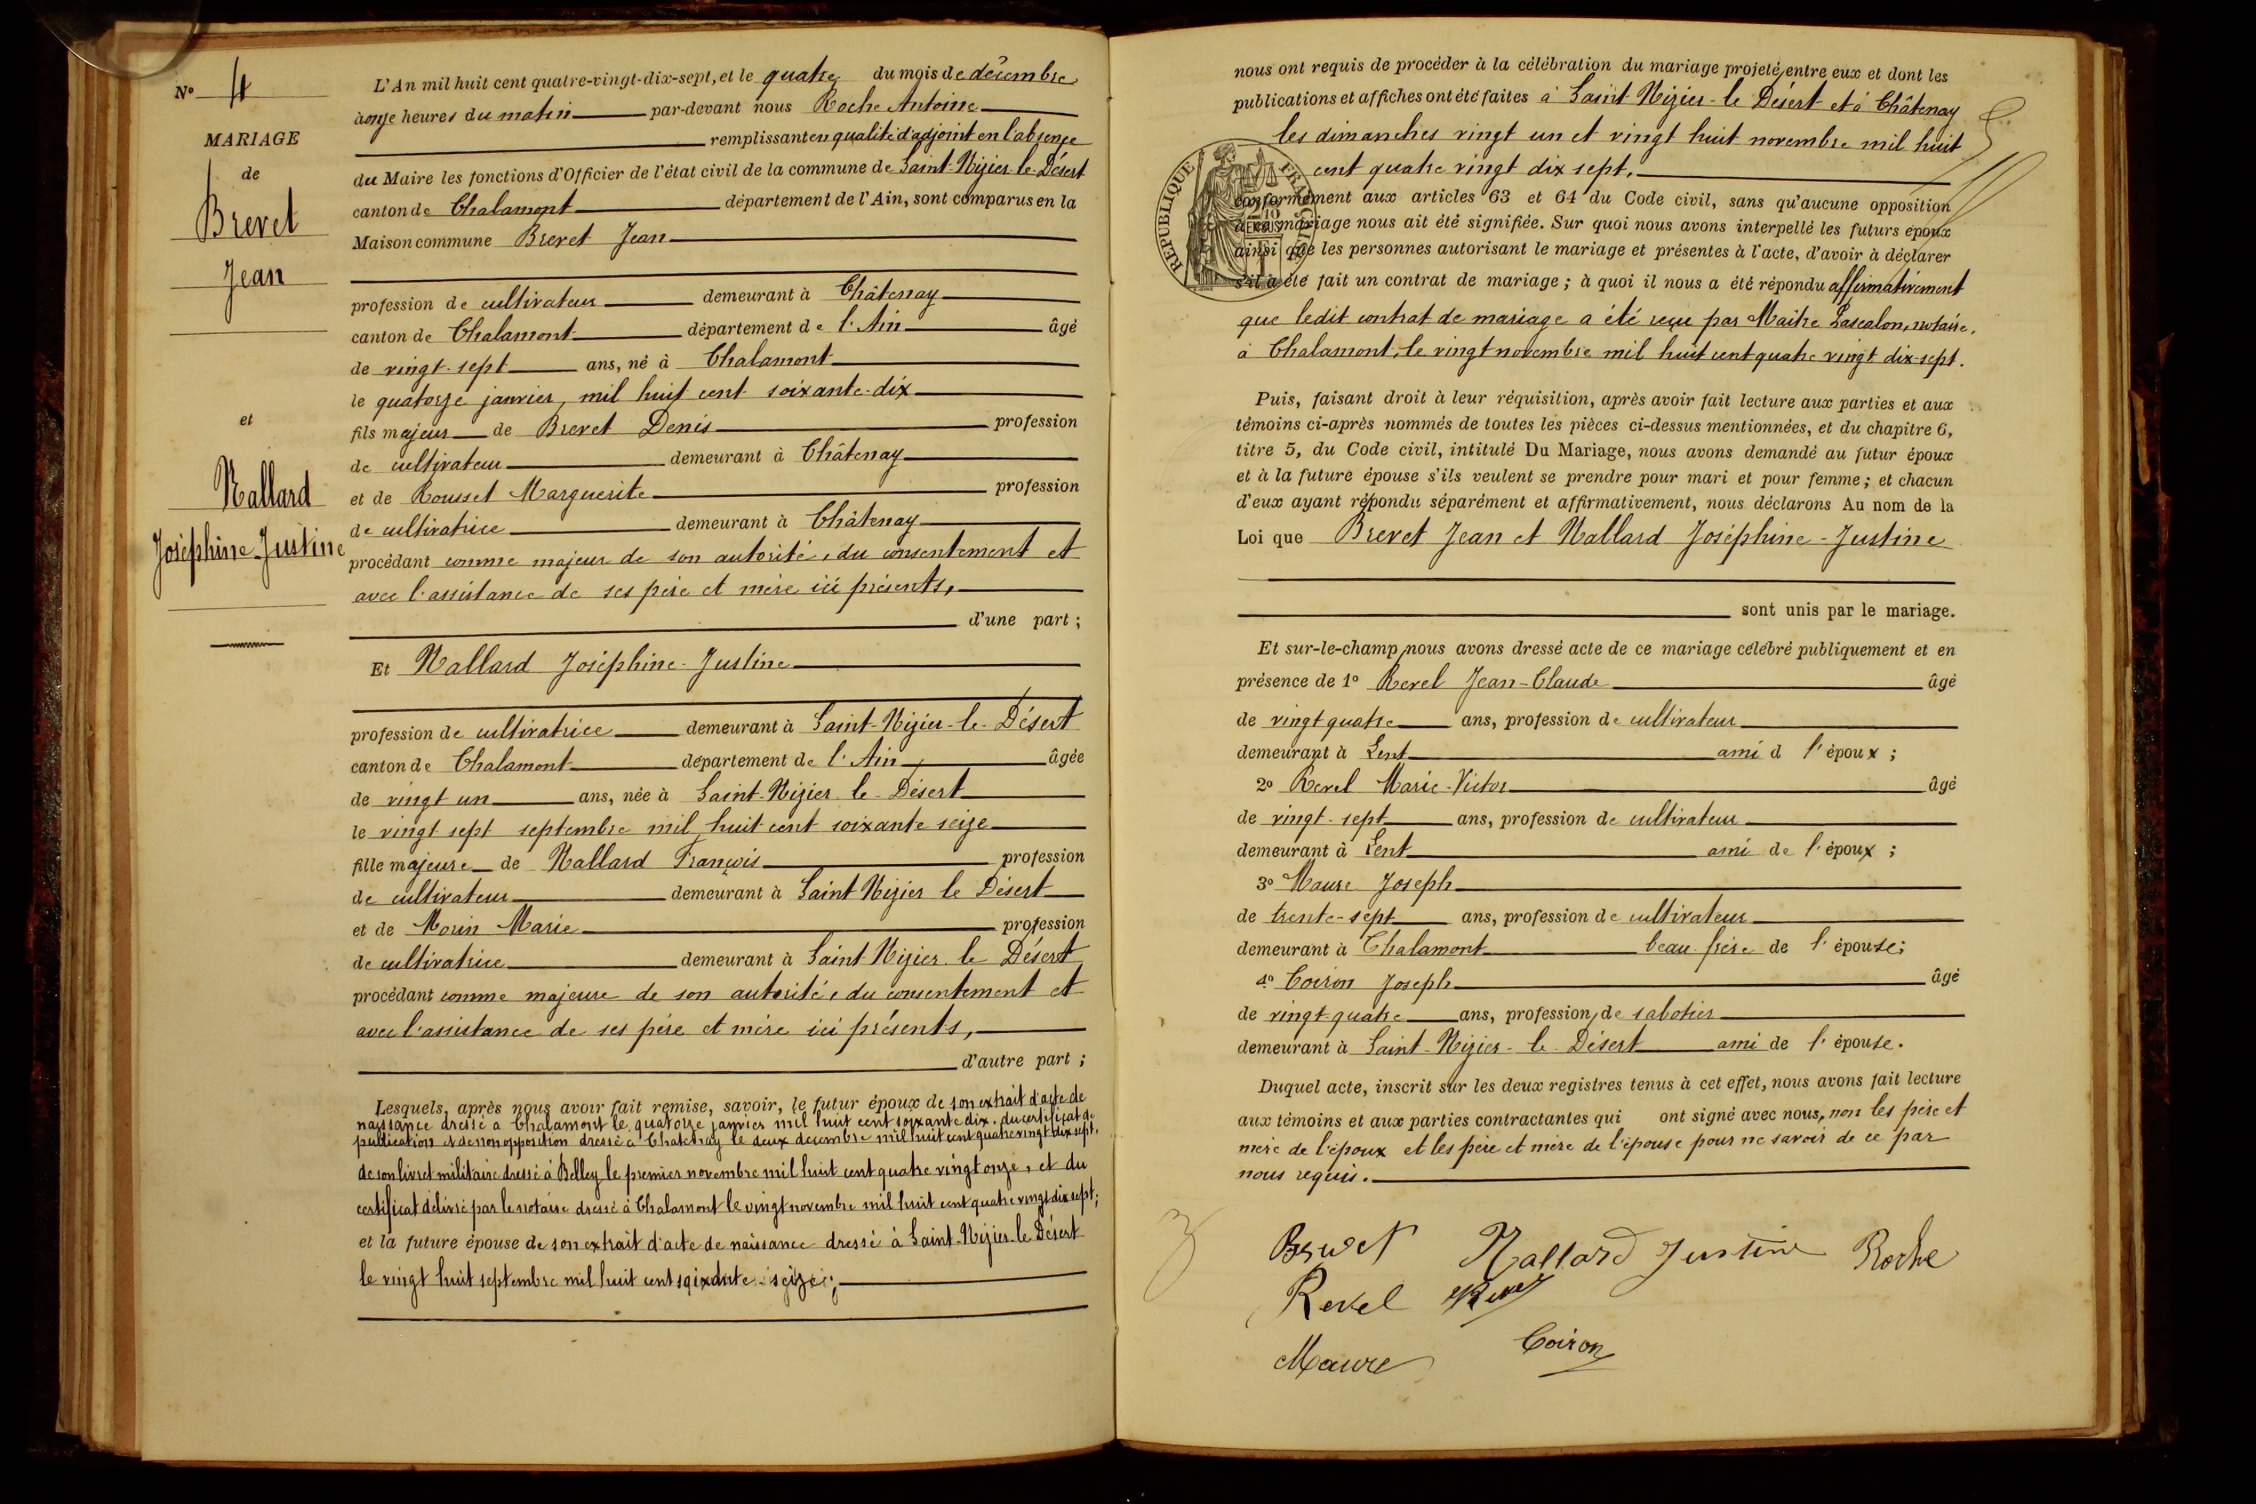 N° 4
MARIAGE
de
Brevet
Jean
et
Nallard
Joséphine-Justine
L'An mil huit cent quatre-vingt-dix-sept, et le quatre du mois de décembre
à onze heures du matin par-devant nous Roche Antoine
remplissant en qualité d'adjoint en l'absence
du Maire les fonctions d'Officier de l'état civil de la commune de Saint-Nizier-le-Désert
canton de Chalamont département de l'Ain, sont comparus en la
Maison commune Brevet Jean
profession de cultivateur demeurant à Châtenay
canton de Chalamont département de l'Ain âgé
de vingt-sept ans, né à Chalamont
le quatorze janvier mil huit cent soixante-dix
fils majeur de Brevet Denis profession
de cultivateur demeurant à Châtenay
et de Rousset Marguerite profession
de cultivatrice demeurant à Châtenay
procédant comme majeur de son autorité, du consentement et
avec l'assistance de ses père et mère ici présents,
d'une part ;
Et Nallard Joséphine-Justine
profession de cultivatrice demeurant à Saint-Nizier-le-Désert
canton de Chalamont département de l'Ain âgée
de vingt un ans, née à Saint-Nizier-le-Désert
le vingt sept septembre mil huit cent soixante seize
fille majeure de Nallard François profession
de cultivateur demeurant à Saint Nizier le Désert
et de Morin Marie profession
de cultivatrice demeurant à Saint Nizier le Désert
procédant comme majeure de son autorité, du consentement et
avec l'assistance de ses père et mère ici présents,
d'autre part ;
Lesquels, après nous avoir fait remise, savoir, le futur époux de son extrait d'acte de
naissance dressé à Chalamont le quatorze janvier mil huit cent soixante dix, du certificat de
publication et de non opposition dressé à Châtenay le deux décembre mil huit cent quatre vingt dix sept,
de son livret militaire dressé à Belley le premier novembre mil huit cent quatre vingt onze, et du
certificat délivré par le notaire dressé à Chalamont le vingt novembre mil huit cent quatre vingt dix sept ;
et la future épouse de son extrait d'acte de naissance dressé à Saint-Nizier-le-Désert
le vingt huit septembre mil huit cent soixante-seize ;
nous ont requis de procéder à la célébration du mariage projeté entre eux et dont les
publications et affiches ont été faites à Saint-Nizier-le Désert et à Châtenay
les dimanches vingt un et vingt huit novembre mil huit
cent quatre vingt dix sept.
RÉPUBLIQUE FRANÇAISE
conformément aux articles 63 et 64 du Code civil, sans qu'aucune opposition
à ce mariage nous ait été signifiée. Sur quoi nous avons interpellé les futurs époux
ainsi que les personnes autorisant le mariage et présentes à l'acte, d'avoir à déclarer
s'il a été fait un contrat de mariage ; à quoi il nous a été répondu affirmativement
que ledit contrat de mariage a été reçu par Maître Lascalon, notaire,
à Chalamont, le vingt novembre mil huit cent quatre vingt dix-sept.
Puis, faisant droit à leur réquisition, après avoir fait lecture aux parties et aux
témoins ci-après nommés de toutes les pièces ci-dessus mentionnées, et du chapitre 6,
titre 5, du Code civil, intitulé Du Mariage, nous avons demandé au futur époux
et à la future épouse s'ils veulent se prendre pour mari et pour femme ; et chacun
d'eux ayant répondu séparément et affirmativement, nous déclarons Au nom de la
Loi que Brevet Jean et Nallard Joséphine-Justine
sont unis par le mariage.
Et sur-le-champ nous avons dressé acte de ce mariage célébré publiquement et en
présence de 1° Revel Jean-Claude âgé
de vingt quatre ans, profession de cultivateur
demeurant à Lent ami d l'époux ;
2° Revel Marie-Victor âgé
de vingt-sept ans, profession de cultivateur
demeurant à Lent ami de l'époux ;
3° Maure Joseph
de trente-sept ans, profession de cultivateur
demeurant à Chalamont beau frère de l'épouse ;
4° Coiron Joseph âgé
de vingt-quatre ans, profession de sabotier
demeurant à Saint-Nizier-le-Désert ami de l'épouse.
Duquel acte, inscrit sur les deux registres tenus à cet effet, nous avons fait lecture
aux témoins et aux parties contractantes qui ont signé avec nous, non les père et
mère de l'époux et les père et mère de l'épouse pour ne savoir de ce par
nous requis.
Brevet Nallard Justine Roche
Revel Revel
Maure Coiron